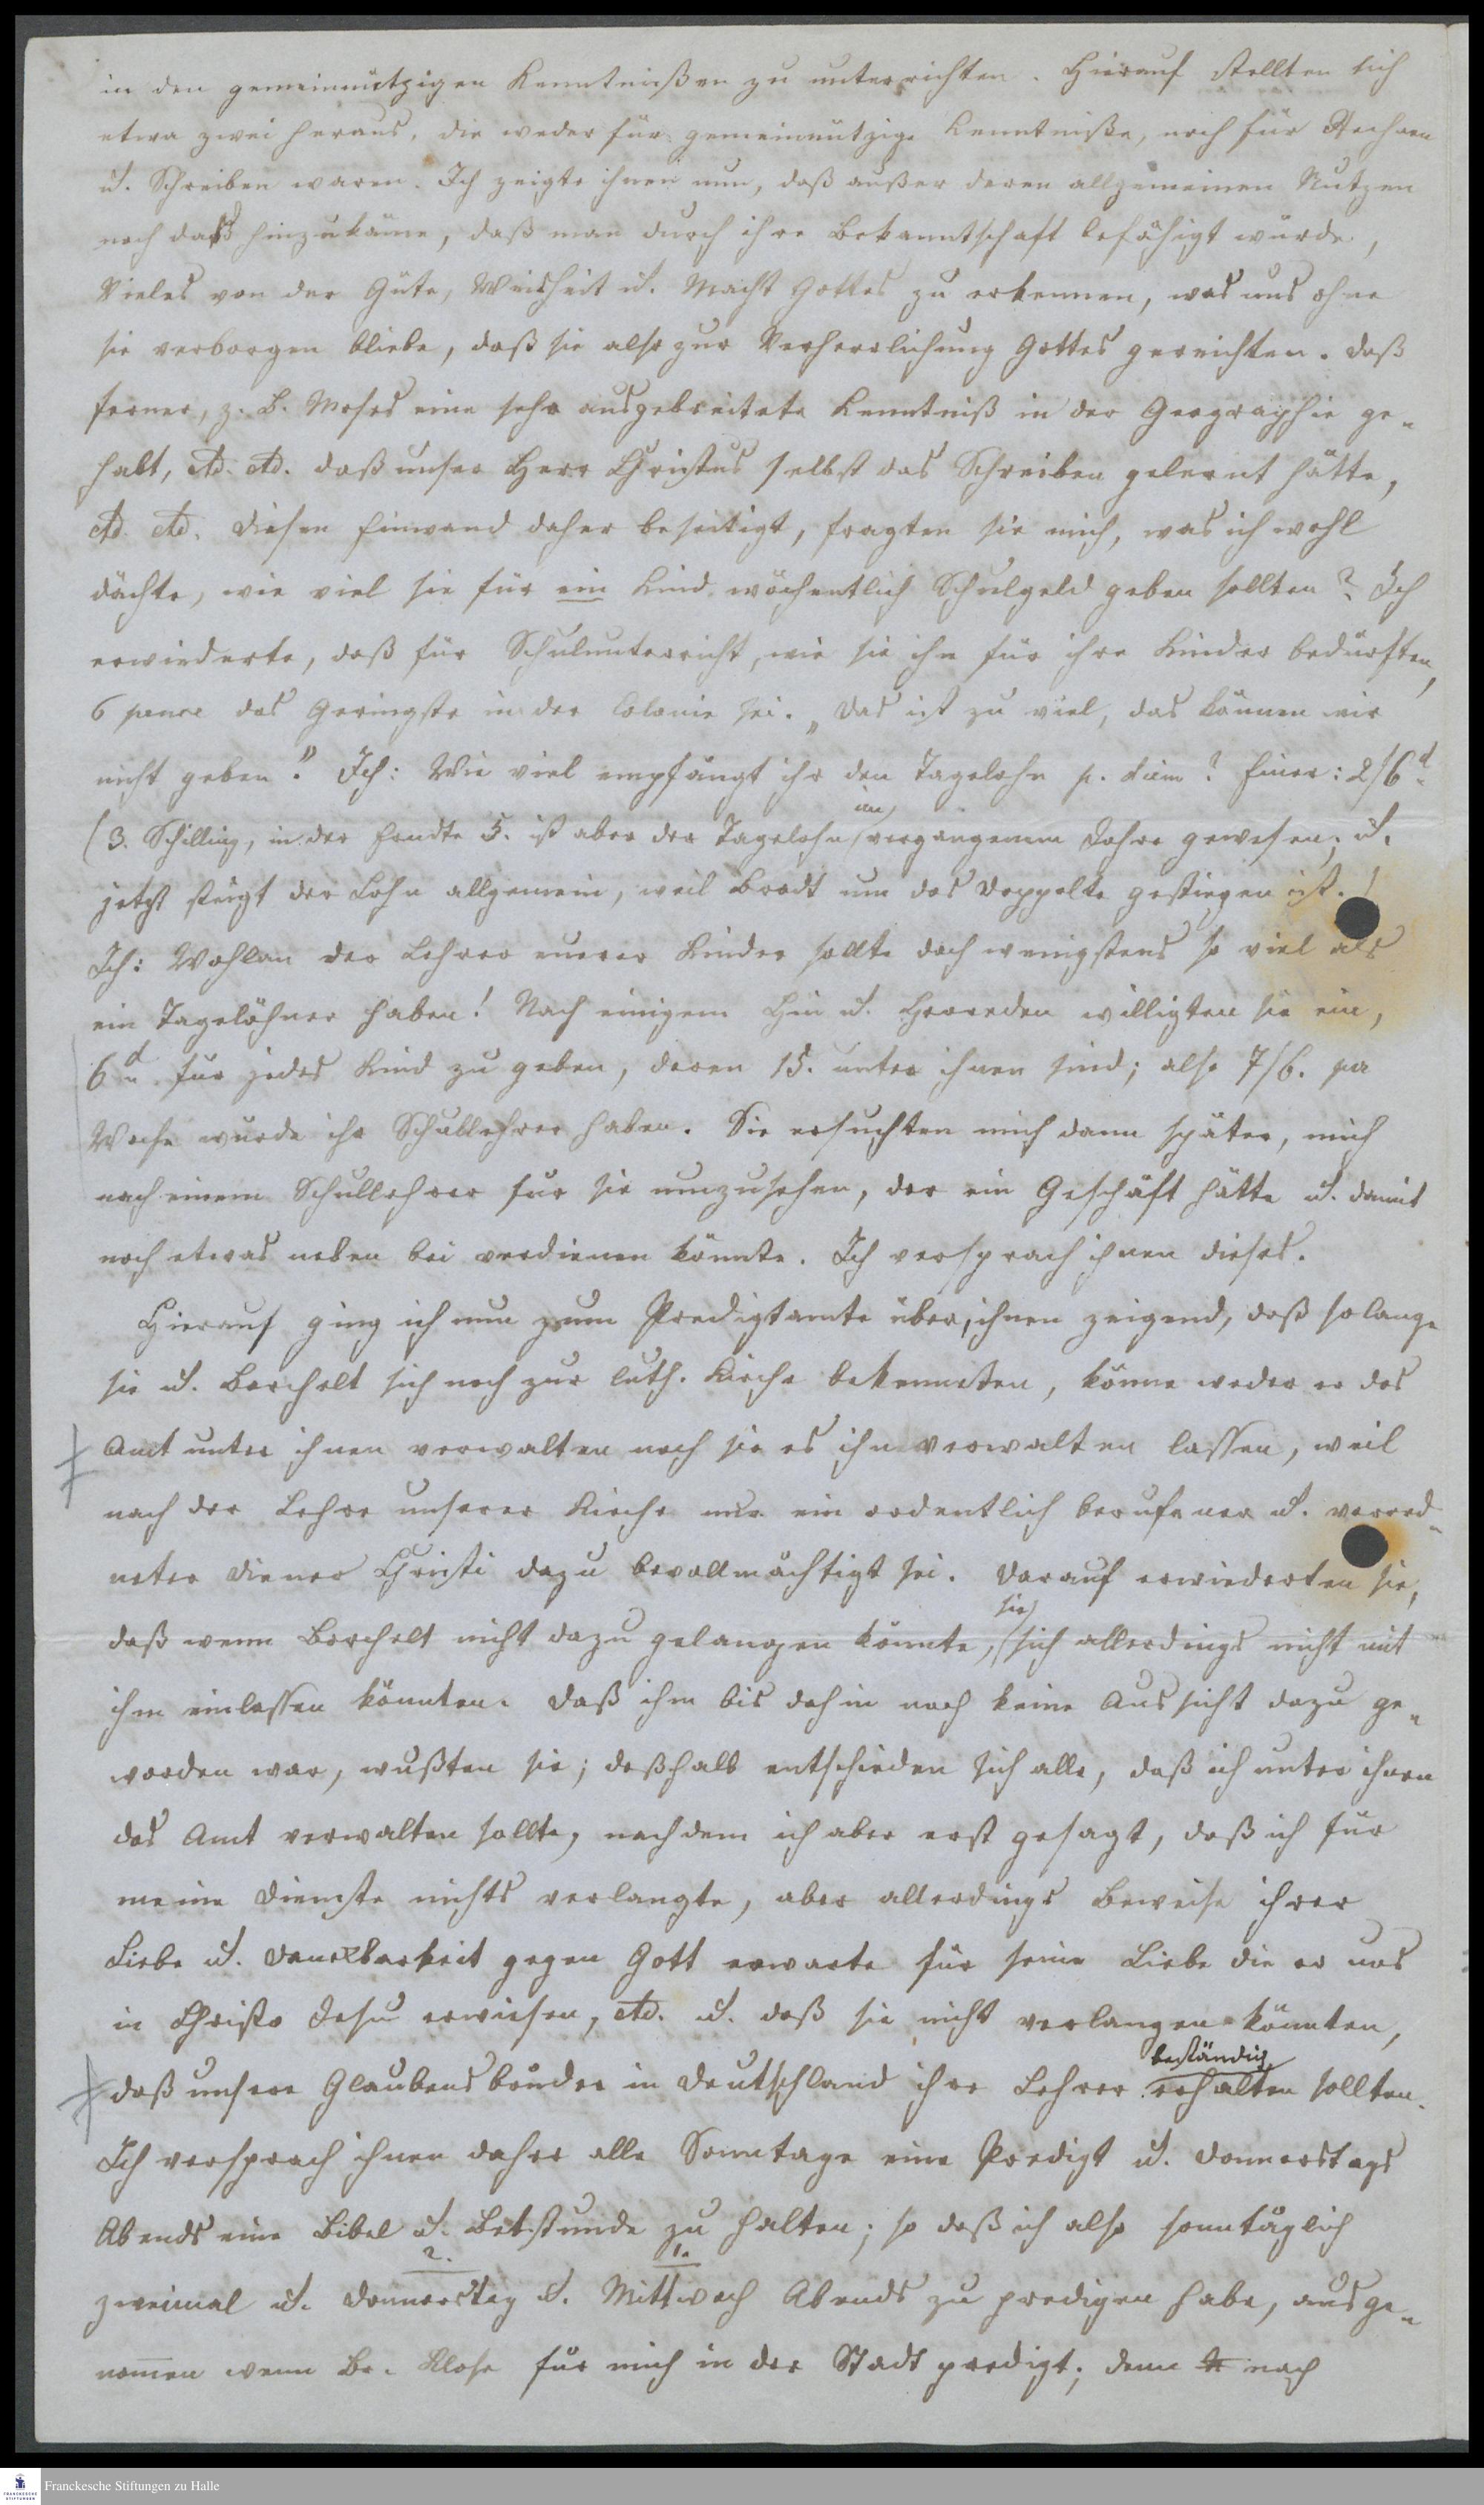 in den gemeinnützigen Kenntnißen zu unterrichten. Hierauf stellten sich
etwa zwei heraus, die weder für gemeinnützige Kenntniße, noch für Rechnen
u. Schreiben waren. Ich zeigte ihnen nun, daß außer deren allgemeinen Nutzen
noch das hinzukäme, daß man durch ihre Bekanntschaft befähigt würde,
Vieles von der Güte, Weisheit u. Macht Gottes zu erkennen, was uns ohne
sie verborgen bliebe, daß sie also zur Verherrlichung Gottes gereichten. Daß
ferner, z. B. Moses eine sehr ausgebreitete Kenntniß in der Geographie ge-
habt, etc. etc. daß unser Herr Christus selbst das Schreiben gelernt hätte,
etc. etc. Diesen Einwand daher beseitigt, fragten sie mich, was ich wohl
dächte, wie viel sie für ein Kind wöchentlich Schulgeld geben sollten? Ich
erwiederte, daß für Schulunterricht, wie sie ihn für ihre Kinder bedürften,
6 pence das Geringste in der Colonie sei. „Das ist zu viel, das können wir
nicht geben“. Ich: Wie viel empfängt ihr den Tagelohn p. diem? Einer: 2/6d
(3. Schilling, in der Erndte 5. ist aber der Tagelohn im vergangenem Jahre gewesen; u.
jetzt steigt der Lohn allgemein, weil Brodt um das Doppelte gestiegen ist.)
Ich: Wohlan der Lehrer euerer Kinder sollte doch wenigstens so viel als
ein Tagelöhner haben! Nach einigem Hin u. Herreden willigten sie ein,
6d für jedes Kind zu geben, deren 15. unter ihnen sind; also 7/6. per
Woche würde ihr Schullehrer haben. Sie ersuchten mich dann später, mich
nach einem Schullehrer für sie umzusehen, der ein Geschäft hätte u. damit
noch etwas neben bei verdienen könnte. Ich versprach ihnen dieses.
Hierauf ging ich nun zum Predigtamte über, ihnen zeigend, daß solange
sie u. Borchelt sich noch zur luth. Kirche bekennten, könne weder er das
Amt unter ihnen verwalten noch sie es ihn verwalten lassen, weil
nach der Lehre unserer Kirche nur ein ordentlich berufener u. verord-
neter Diener Christi dazu bevollmächtigt sei. Darauf erwiederten sie,
daß wenn Borchelt nicht dazu gelangen könnte, sie sich allerdings nicht mit
ihm einlassen könnten. Daß ihm bis dahin noch keine Aussicht dazu ge-
worden war, wußten sie; deßhalb entschieden sich alle, daß ich unter ihnen
das Amt verwalten sollte, nachdem ich aber erst gesagt, daß ich für
meine Dienste nichts verlangte, aber allerdings Beweise ihrer
Liebe u. Dankbarkeit gegen Gott erwarte für seine Liebe die er uns
in Christo Jesu erwiesen, etc. u. daß sie nicht verlangen könnten,
daß unsere Glaubensbrüder in Deutschland ihre Lehrer beständig erhalten sollten.
Ich versprach ihnen daher alle Sonntage eine Predigt u. Donnerstags
Abends eine Bibel u. Betstunde zu halten; so daß ich also sonntäglich
zweimal u. 2. Donnerstag u. 1. Mittwoch Abends zu predigen habe, ausge-
nommen wenn Br. Klose für mich in der Stadt predigt; denn nach
Franckesche Stiftungen zu Halle